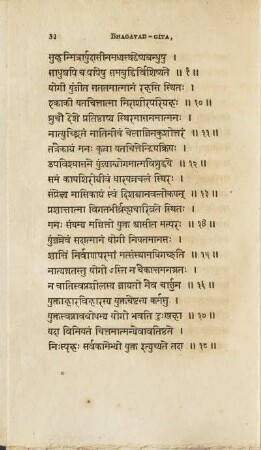 32 BHAGAVAD-GITA,
सुहृन्मित्रार्युदासीनमध्यस्थद्वेष्यबन्धुषु ।
साधुष्वपि च पापेषु समबुद्धिर्विशिष्यते ॥ ९॥
योगी युञ्जीत सततमात्मानं रहसि स्थितः ।
एकाकी यतचित्तात्मा निराशीरपरिग्रहः ॥ १० ॥
शुचौ देशे प्रतिष्ठाप्य स्थिरमासनमात्मनः ।
नात्युच्छ्रितं नातिनीचं चेलाजिनकुशोत्तरं ॥ ११ ॥
तत्रैकाग्रं मनः कृत्वा यतचित्तेन्द्रियक्रियः ।
उपविश्यासने युंज्याद्योगमात्मविशुद्धये ॥ १२ ॥
समं कायशिरोग्रीवं धारयन्नचलं स्थिरः ।
संप्रेक्ष्य नासिकाग्रं स्वं दिशश्चानवलोकयन् ॥ १३ ॥
प्रशान्तात्मा विगतभीर्ब्रह्मचारिव्रते स्थितः ।
मनः संयम्य मच्चित्तो युक्त आसीत मत्परः ॥ १४ ॥
युंजन्नेवं सदात्मानं योगी नियतमानसः ।
शान्तिं निर्वाणपरमां मत्संस्थामधिगच्छति ॥ १५ ॥
नात्यश्नतस्तु योगो ऽस्ति न चैकान्तमनश्नतः ।
न चातिस्वप्नशीलस्य जाग्रतो नैव चार्जुन ॥ १६ ॥
युक्ताहारविहारस्य युक्तचेष्टस्य कर्मसु ।
युक्तस्वप्नावबोधस्य योगो भवति दुःखहा ॥ १७ ॥
यदा विनियतं चित्तमात्मन्येवावतिष्ठते ।
निःस्पृहः सर्वकामेभ्यो युक्त इत्युच्यते तदा ॥ १८ ॥